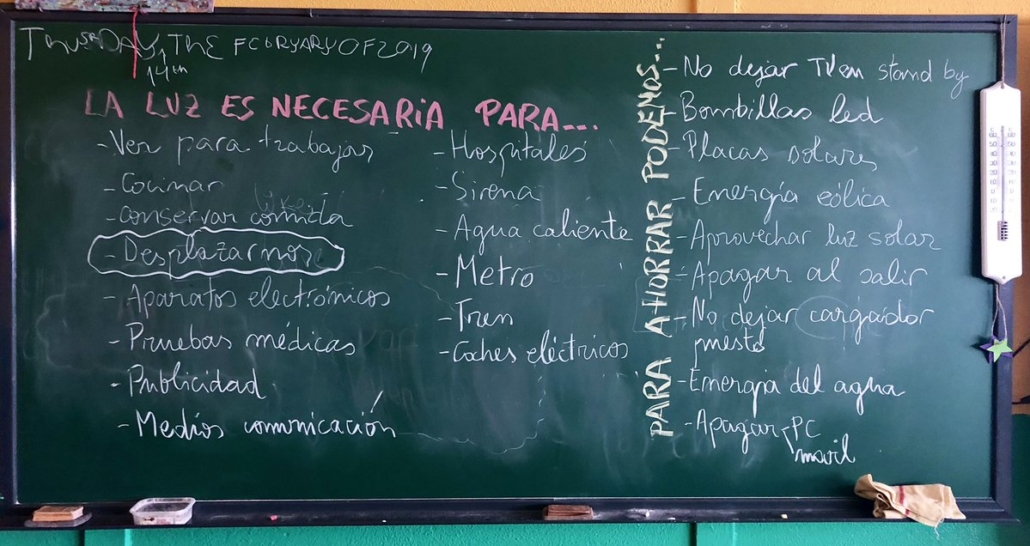 THURSDAY, THE FEBRYARY OF 2019
14th
LA LUZ ES NECESARIA PARA...
- Ver para trabajar
- Cocinar
- conservar comida
- Desplazarnos
- Aparatos electrónicos
- Pruebas médicas
- Publicidad
- Medios comunicación
- Hospitales
- Sirena
- Agua caliente
- Metro
- Tren
- Coches eléctricos
PARA AHORRAR PODEMOS...
- No dejar TV en stand by
- Bombillas led
- Placas solares
- Energía eólica
- Aprovechar luz solar
- Apagar al salir
- No dejar cargador
puesto
- Energia del agua
- Apagar PC
movil